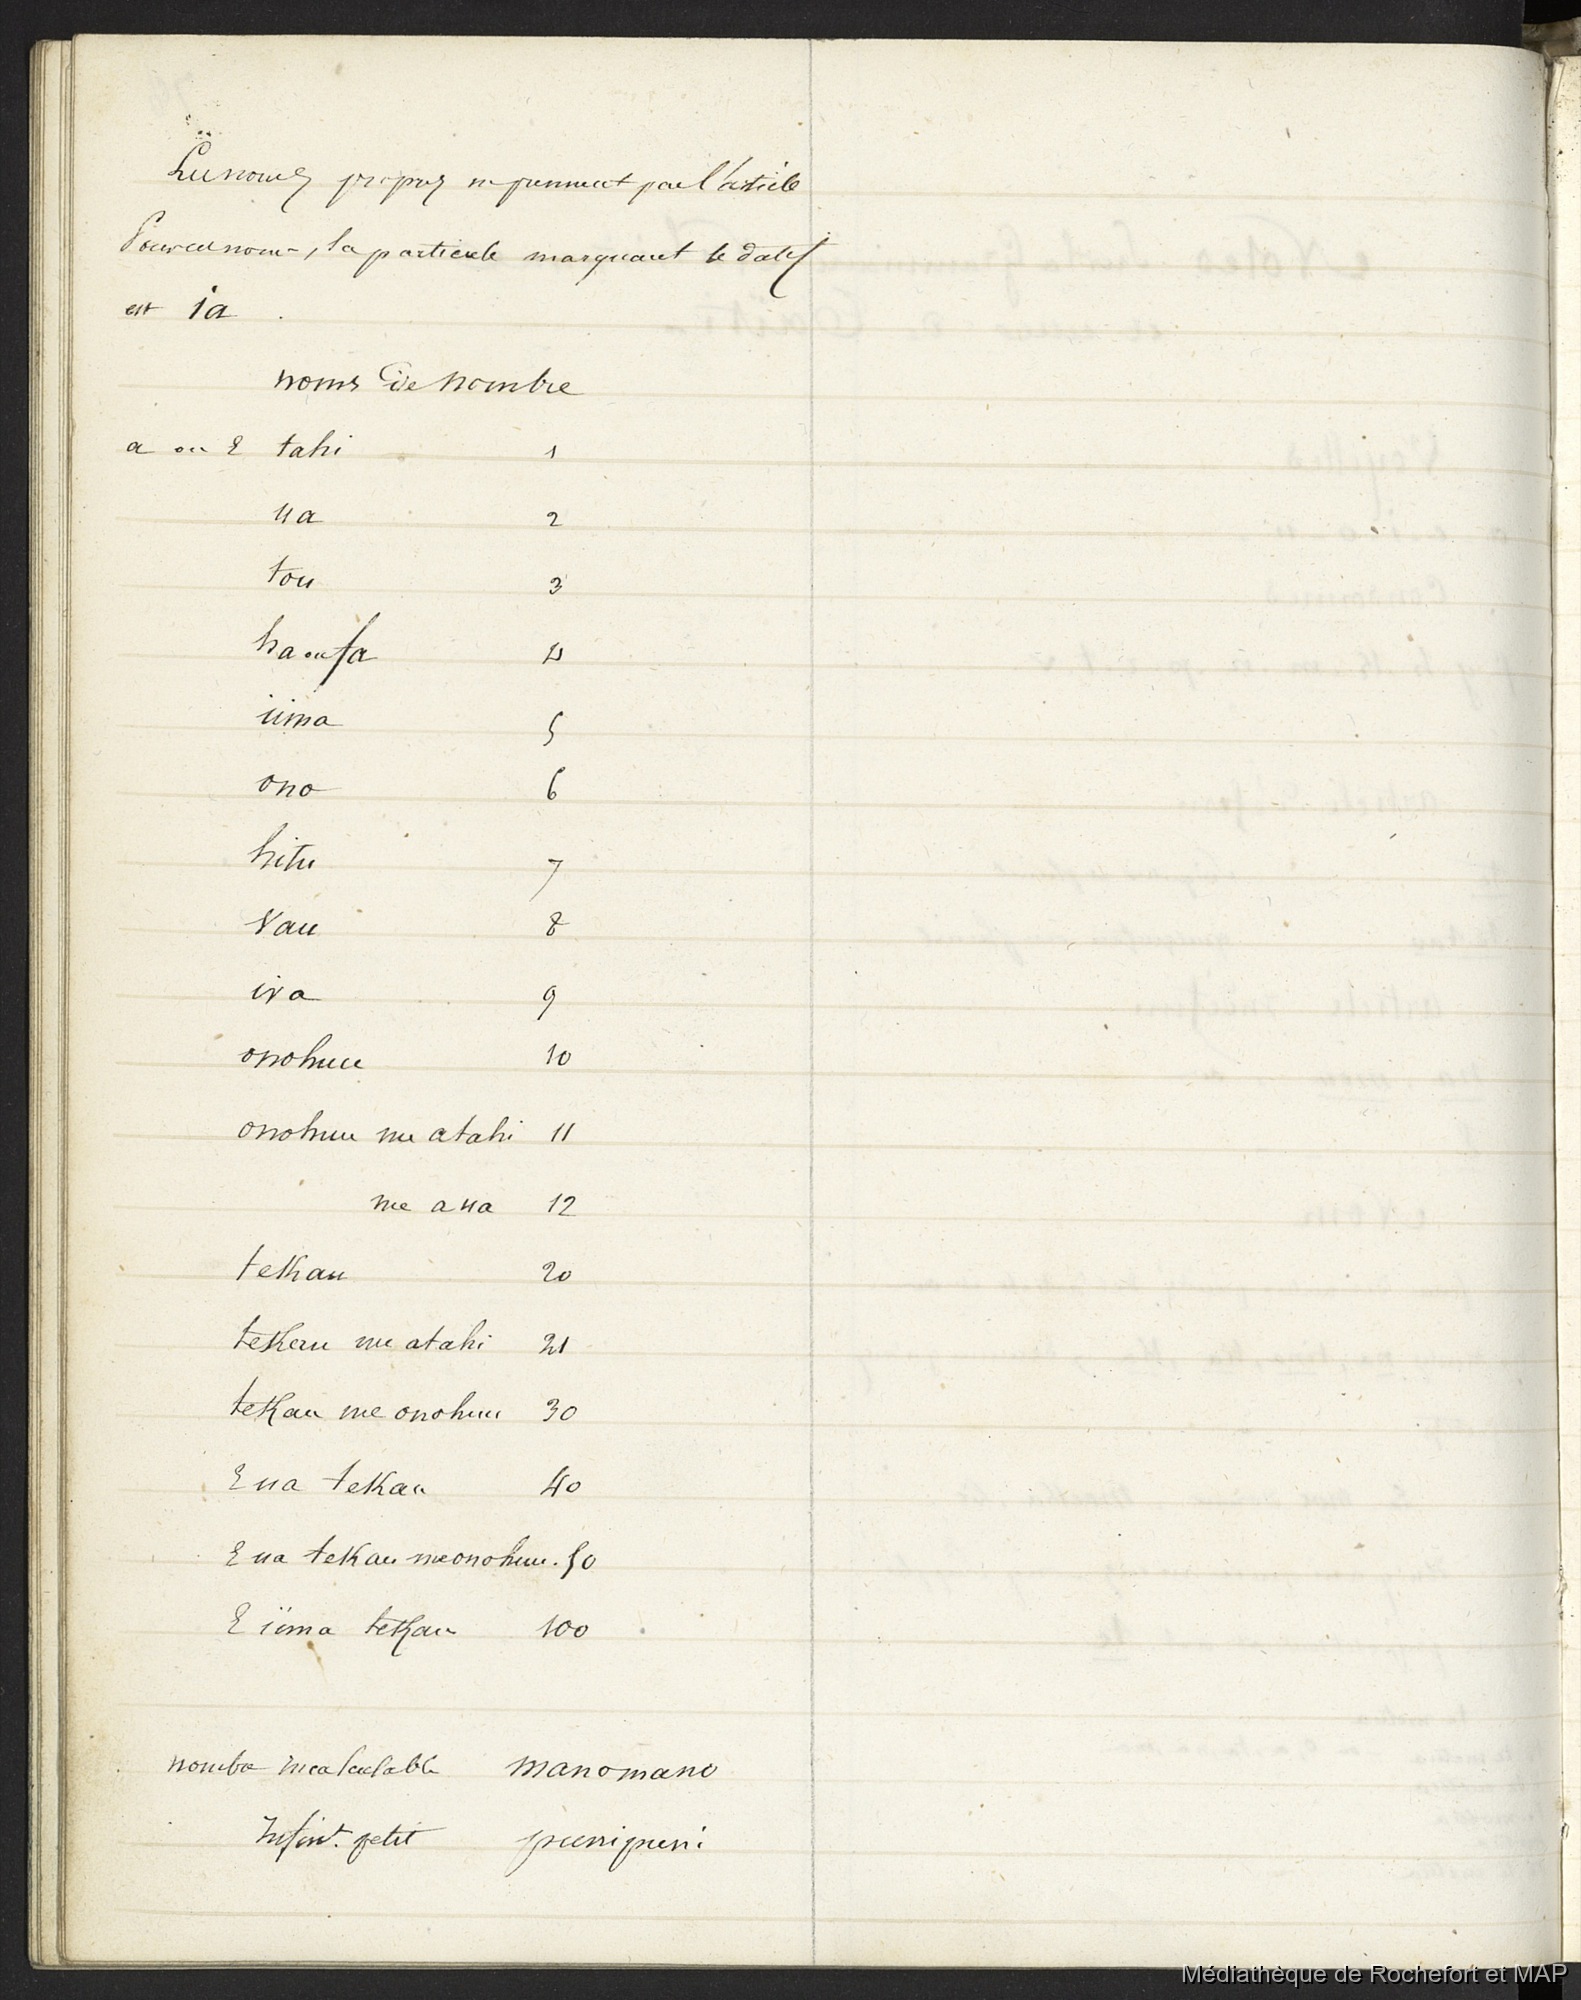 Les noms propres ne prennent pas l'article
Pour ces noms, la particule marquant le datif
est ia
noms de nombre
a ou E tahi 1
ua 2
tou 3
ha ou fa 4
iima 5
ono 6
hitu 7
vau 8
iva 9
onohuu 10
onohuu me atahi 11
me a ua 12
teKau 20
teKau me atahi 21
teKau me onohuu 30
E ua teKau 40
E ua teKau me onohuu. 50
E iima teKau 100
nombre incalculable manomano
Infint. petit
Médiathèque de Rochefort et MAP